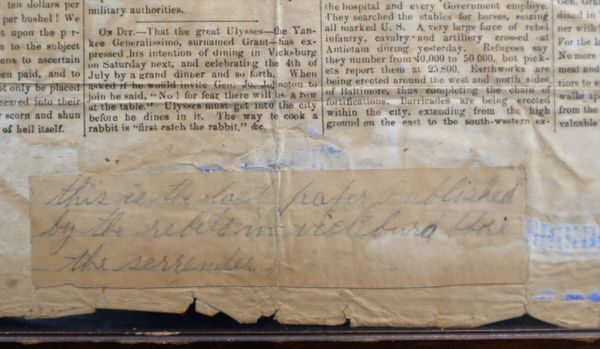 ten dollars per
per bushel! We
upon the p-r-
n to the subject
ens to ascertain
een paid, and to
ot only be placed
seared into their
scorn and shun
of hell itself.
military authorities.
ON DIT.—That the great Ulysses—the Yan-
kee Generalissimo, surnamed Grant—has ex-
pressed his intention of dining in Vicksburg
on Saturday next, and celebrating the 4th of
July by a grand dinner and so forth. When
asked if he would invite Gen. Jo. Johnston to
join he said, "No! for fear there will be a row
at the table." Ulysses must get into the city
before he dines in it. The way to cook a
rabbit is "first catch the rabbit," &c.
the hospital and every Government employe.
They searched the stables for horses, seizing
all marked U. S. A very large force of rebel
infantry, cavalry and artillery crossed at
Antietam during yesterday. Refugees say
they number from 40,000 to 50,000, but pick-
ets report them at 25,800. Earthworks are
being erected around the west and north sides
of Baltimore, thus completing the chain of
fortifications. Barricades are being erected
within the city, extending from the high
ground on the east to the south-western ex-
Gen. Gra
dined in
ner with
For the l
No more
meat and
riors to e
walls up
from the
valuable
this is the last paper Published
by the rebels in vicksburg before
the serrender